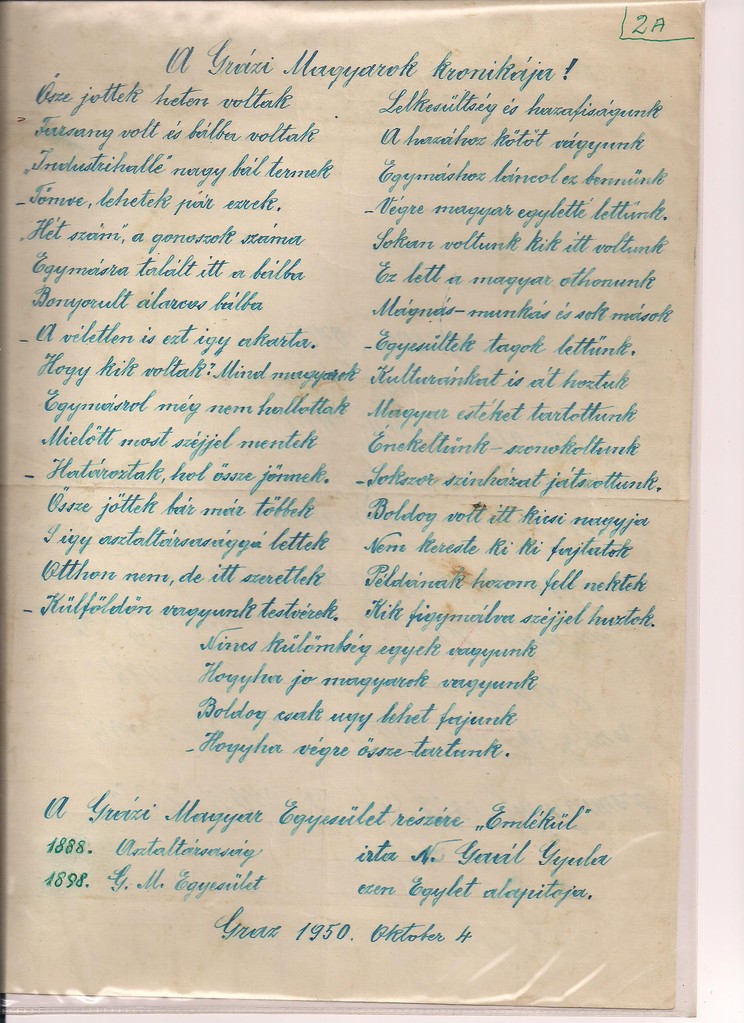 2A
A Grázi Magyarok kronikája!
Ösze jöttek heten voltak
Farsang volt és bálba voltak
„Industrihalle" nagy bál termek
- Tömve, lehetek pár ezrek.
„Hét szám", a gonoszok száma
Egymásra talált itt a bálba
Bonyorult álarcos bálba
- A véletlen is ezt igy akarta.
Hogy kik voltak? Mind magyarok
Egymásrol még nem hallottak
Mielött most széjjel mentek
- Határoztak, hol össze jönnek.
Össze jöttek bár már többek
S igy asztaltársasággá lettek
Otthon nem, de itt szeretlek
- Külföldön vagyunk testvérek.
Lelkesültség és hazafiságunk
A hazához kötöt vágyunk
Egymáshoz láncol ez bennünk
- Végre magyar egyletté lettünk.
Sokan voltunk kik itt voltunk
Ez lett a magyar othonunk
Mágnás-munkás és sok mások
- Egyesültek tagok lettünk.
Kulturánkat is át hoztuk
Magyar estéket tartottunk
Énekeltünk-szonokoltunk
- Sokszor szinházat játszottunk.
Boldog volt itt kicsi nagyja
Nem kereste ki ki fajtatok
Példának hozom fell nektek
Kik figymálva széjjel huztok.
Nincs külömbség egyek vagyunk
Hogyha jo magyarok vagyunk
Boldog csak ugy lehet fajunk
- Hogyha végre össze-tartunk.
A Grázi Magyar Egyesület részére „Emlékül"
1888. Asztaltársaság irta N. Gaál Gyula
1898. G. M. Egyesület ezen Egylet alapitoja.
Graz 1950. Oktober 4